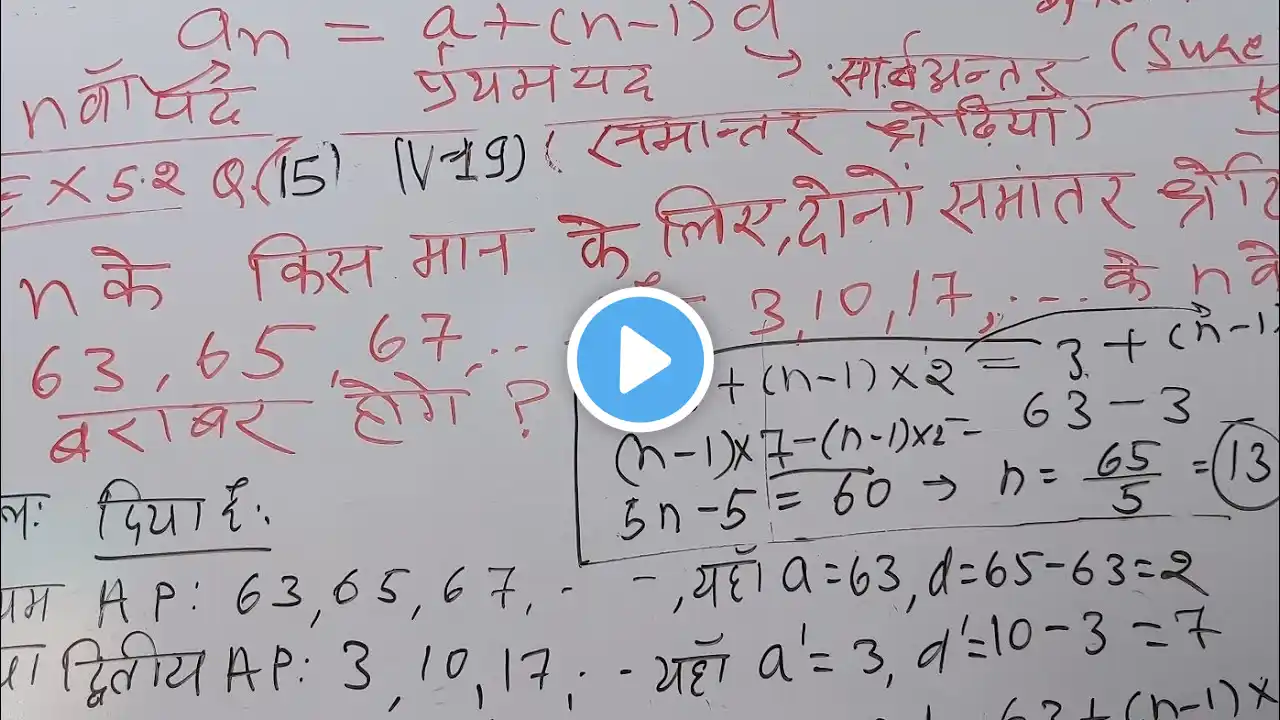 an = a + (n-1) d
nवाँ पद प्रथम पद सार्वअन्तर (Sure
Ex 5.2 Q.(15) (V-19) (समान्तर श्रेढ़ियां)
n के किस मान के लिए, दोनों समांतर श्रेढि
63, 65, 67, .. 3, 10, 17, ... के n वे
बराबर होगे ?
+ (n-1) × 2 = 3 + (n-1
(n-1)×7-(n-1)×2= 63-3
5n-5 = 60 → n = 65/5 = 13
दिया है:
AP: 63, 65, 67, . - -, यहाँ a=63, d=65-63=2
द्वितीय AP: 3, 10, 17, .. यहाँ a'=3, d'=10-3=7
63+(n-1)×